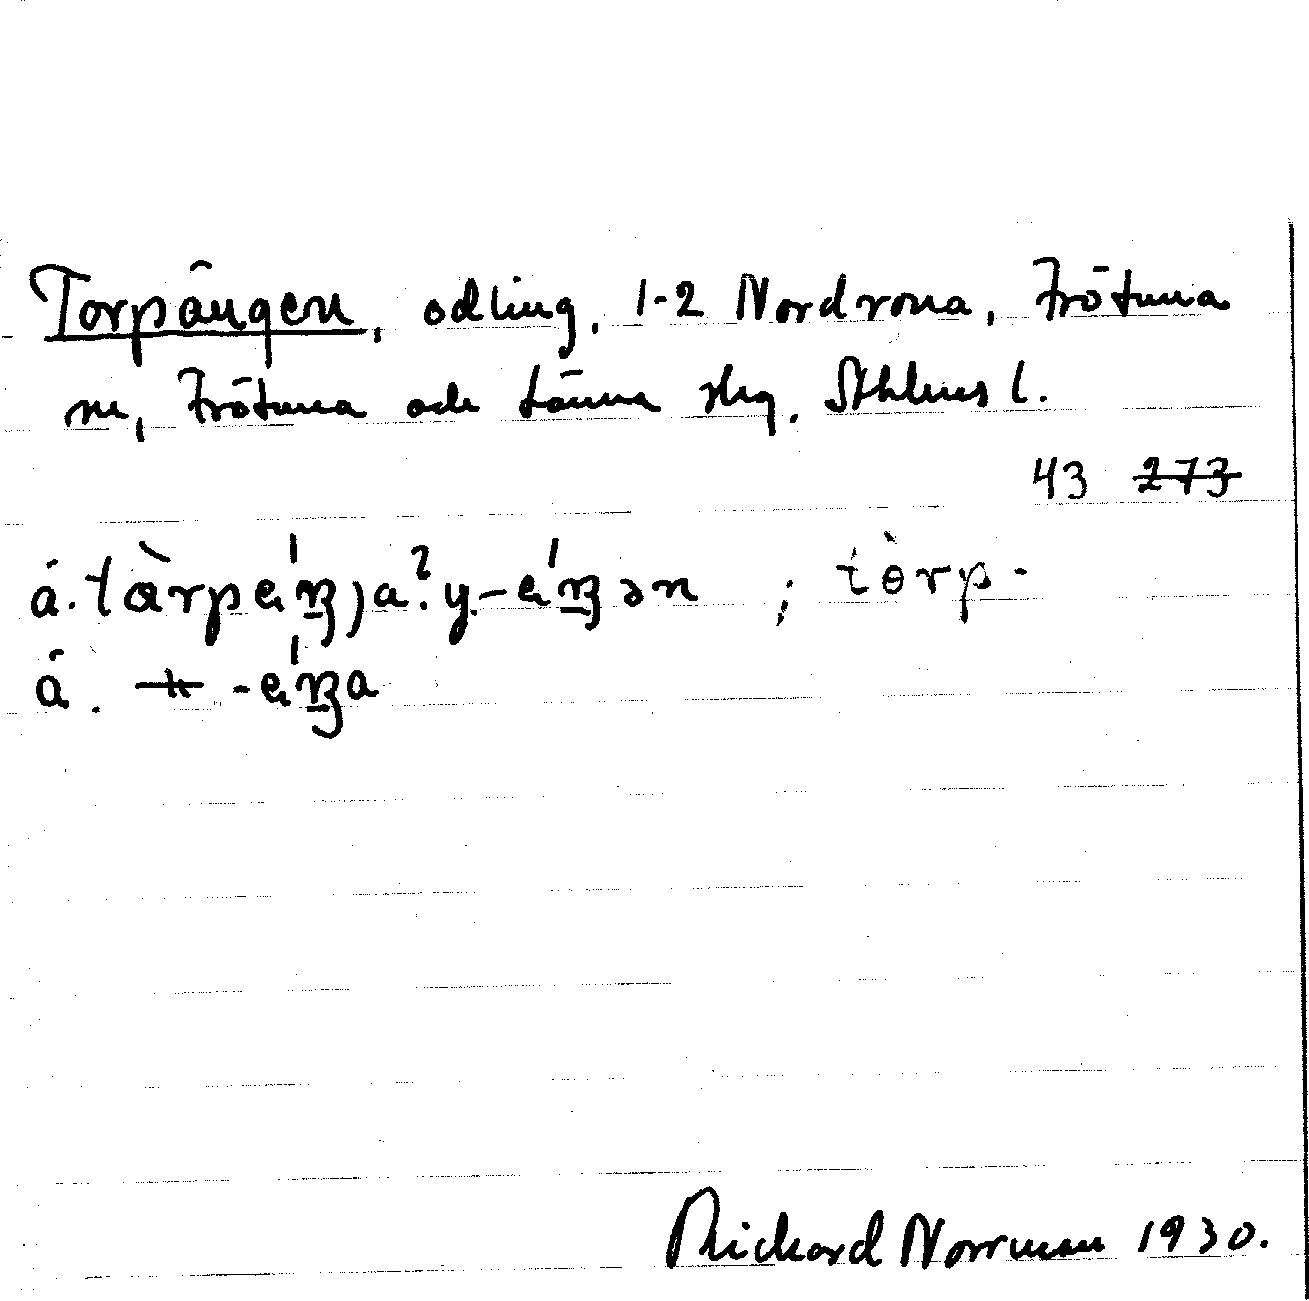 Torpängen, odling, 1-2 Nordrona, Frötuna
sn, Frötuna och Länna skg. Sthlms l.
43 273
á. tòrpǽŋ)a? y. -ǽŋən ; tòrp-
á. -ǽŋa
Rickard Norrman 1930.